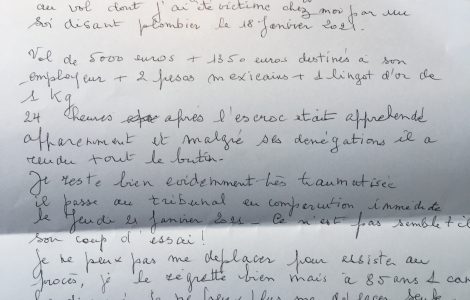 au vol dont j'ai été victime chez moi par un
soi disant plombier le 18 janvier 2021.
Vol de 5000 euros + 1350 euros destinés à son
employeur + 2 pesos mexicains + 1 lingot d'or de
1 Kg
24 heures après l'escroc était appréhendé
apparemment et malgré ses dénégations il a
rendu tout le butin.
Je reste bien evidemment très traumatisée
il passe au tribunal en comparution immédiate
le jeudi 21 janvier 2021 - Ce n'est pas semble t il
son coup d'essai !
Je ne peux pas me deplacer pour assister au
procès, je le regrette bien mais à 85 ans 1 can
je ne peux plus me deplacer seule